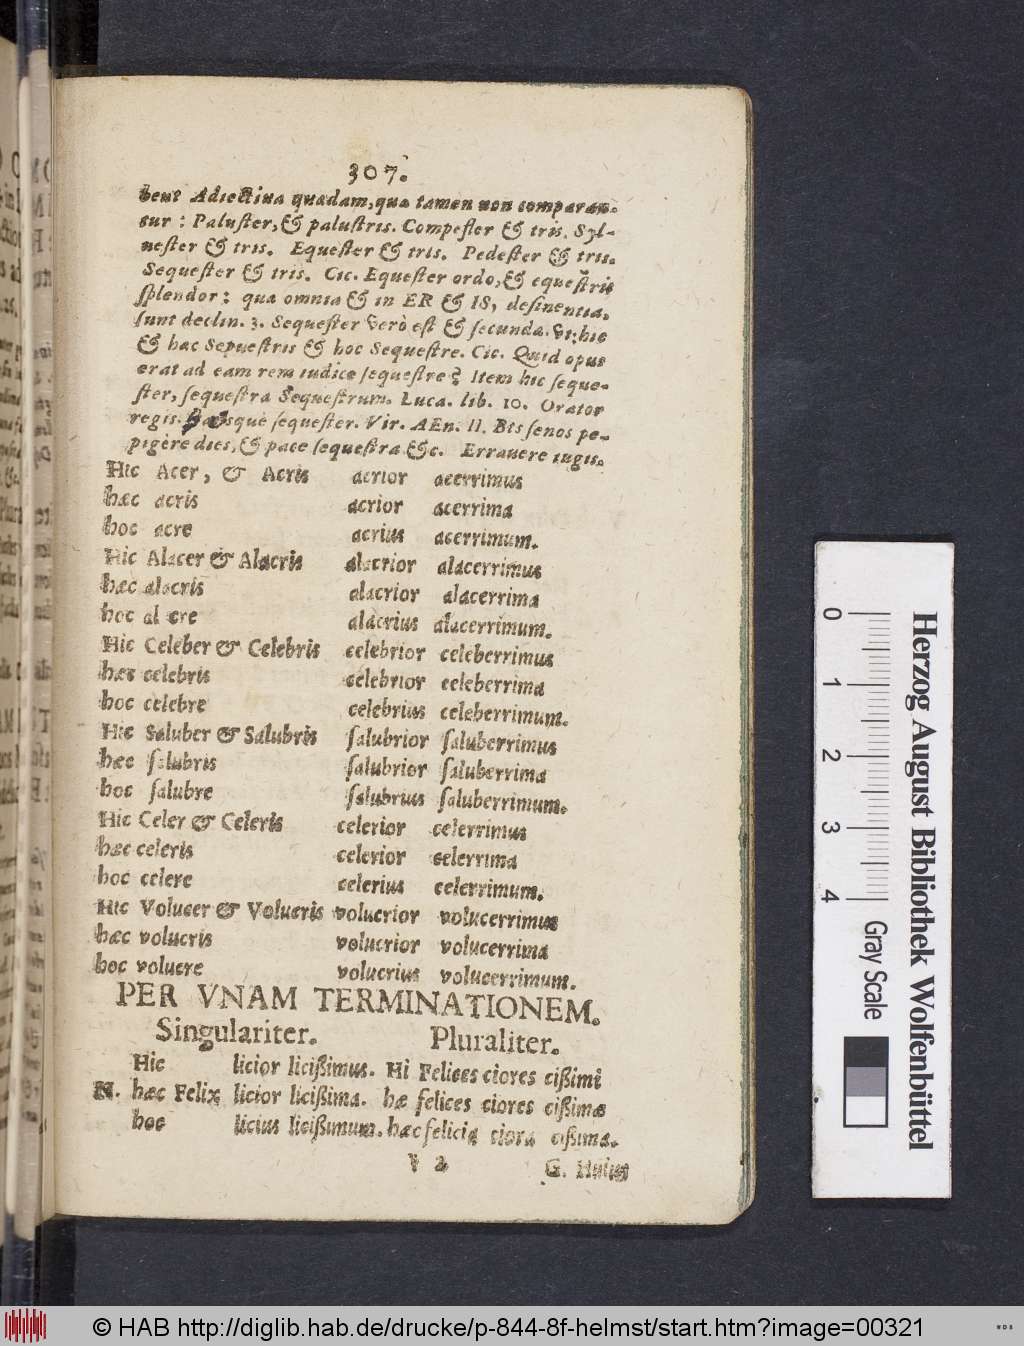 307.
bent Adiectiua quædam, quæ tamen non comparan-
tur : Paluſter, & paluſtris. Compeſter & tris. Syl-
ueſter & tris. Equeſter & tris. Pedeſter & tris.
Sequeſter & tris. Cic. Equeſter ordo, & equeſtris
ſplendor: quæ omnia & in ER & IS, deſinentia,
ſunt declin. 3. Sequeſter verò eſt & ſecunda. vt; hic
& hæc Sepueſtris & hoc Sequeſtre. Cic. Quid opus
erat ad eam rem iudice ſequeſtre? Item hic ſeque-
ſter, ſequeſtra Sequeſtrum. Luca. lib. 10. Orator
regis. ſequeſter. Vir. AEn. 11. Bis ſenos pe-
pigère dies, & pace ſequeſtra &c. Errauere iugis.
Hic Acer, & Acris acrior acerrimus
hæc acris acrior acerrima
hoc acre acrius acerrimum.
Hic Alacer & Alacris alacrior alacerrimus
hæc alacris alacrior alacerrima
hoc al cre alacrius alacerrimum.
Hic Celeber & Celebris celebrior celeberrimus
hæc celebris celebrior celeberrima
hoc celebre celebrius celeberrimum.
Hic Saluber & Salubris ſalubrior ſaluberrimus
hæc ſalubris ſalubrior ſaluberrima
hoc ſalubre ſalubrius ſaluberrimum.
Hic Celer & Celeris celerior celerrimus
hæc celeris celerior celerrima
hoc celere celerius celerrimum.
Hic Volucer & Volucris volucrior volucerrimus
hæc volucris volucrior volucerrima
hoc volucre volucrius volucerrimum.
PER VNAM TERMINATIONEM.
Singulariter. Pluraliter.
Hic licior licißimus. Hi Felices ciores cißimi
N. hæc Felix licior licißima. hæ felices ciores cißimæ
hoc licius licißimum. hæc felicia ciora cißima.
V 2 G. Huius
Herzog August Bibliothek Wolfenbüttel
0 1 2 3 4 Gray Scale
© HAB http://diglib.hab.de/drucke/p-844-8f-helmst/start.htm?image=00321